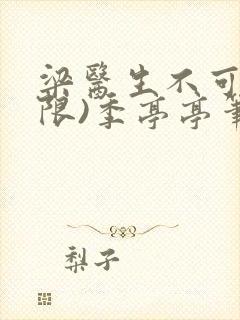 梁醫生不可
限)季亭亭筆
梨子